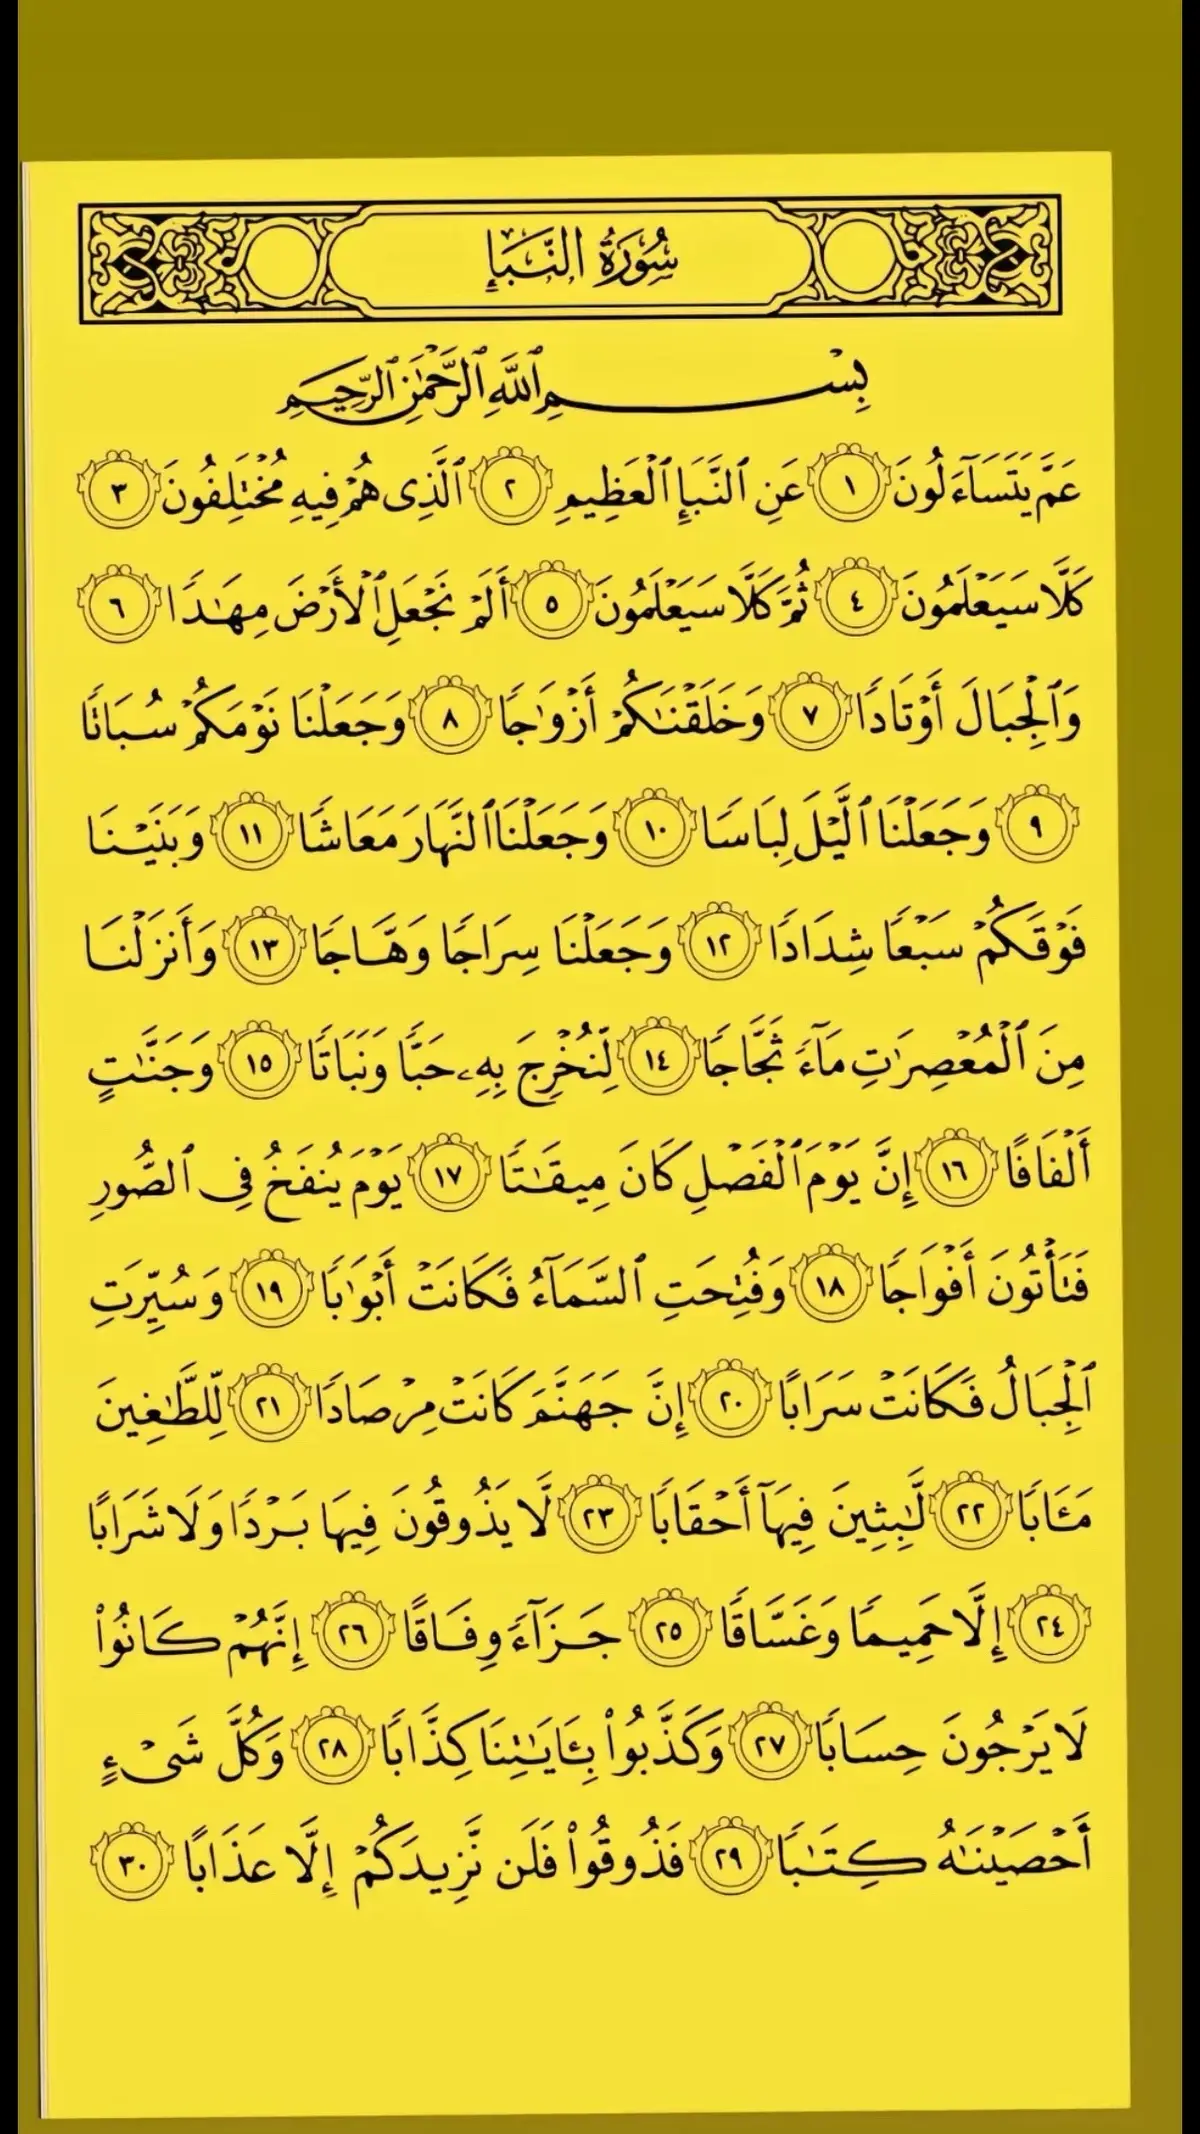 سُورَةُ النَّبَإِ
بِسْمِ ٱللَّهِ ٱلرَّحْمَٰنِ ٱلرَّحِيمِ
عَمَّ يَتَسَآءَلُونَ ١ عَنِ ٱلنَّبَإِ ٱلْعَظِيمِ ٢ ٱلَّذِى هُمْ فِيهِ مُخْتَلِفُونَ ٣
كَلَّا سَيَعْلَمُونَ ٤ ثُمَّ كَلَّا سَيَعْلَمُونَ ٥ أَلَمْ نَجْعَلِ ٱلْأَرْضَ مِهَٰدًا ٦
وَٱلْجِبَالَ أَوْتَادًا ٧ وَخَلَقْنَٰكُمْ أَزْوَٰجًا ٨ وَجَعَلْنَا نَوْمَكُمْ سُبَاتًا
٩ وَجَعَلْنَا ٱلَّيْلَ لِبَاسًا ١٠ وَجَعَلْنَا ٱلنَّهَارَ مَعَاشًا ١١ وَبَنَيْنَا
فَوْقَكُمْ سَبْعًا شِدَادًا ١٢ وَجَعَلْنَا سِرَاجًا وَهَّاجًا ١٣ وَأَنزَلْنَا
مِنَ ٱلْمُعْصِرَٰتِ مَآءً ثَجَّاجًا ١٤ لِّنُخْرِجَ بِهِۦ حَبًّا وَنَبَاتًا ١٥ وَجَنَّٰتٍ
أَلْفَافًا ١٦ إِنَّ يَوْمَ ٱلْفَصْلِ كَانَ مِيقَٰتًا ١٧ يَوْمَ يُنفَخُ فِى ٱلصُّورِ
فَتَأْتُونَ أَفْوَاجًا ١٨ وَفُتِحَتِ ٱلسَّمَآءُ فَكَانَتْ أَبْوَٰبًا ١٩ وَسُيِّرَتِ
ٱلْجِبَالُ فَكَانَتْ سَرَابًا ٢٠ إِنَّ جَهَنَّمَ كَانَتْ مِرْصَادًا ٢١ لِّلطَّٰغِينَ
مَـَٔابًا ٢٢ لَّٰبِثِينَ فِيهَآ أَحْقَابًا ٢٣ لَّا يَذُوقُونَ فِيهَا بَرْدًا وَلَا شَرَابًا
٢٤ إِلَّا حَمِيمًا وَغَسَّاقًا ٢٥ جَزَآءً وِفَاقًا ٢٦ إِنَّهُمْ كَانُوا۟
لَا يَرْجُونَ حِسَابًا ٢٧ وَكَذَّبُوا۟ بِـَٔايَٰتِنَا كِذَّابًا ٢٨ وَكُلَّ شَىْءٍ
أَحْصَيْنَٰهُ كِتَٰبًا ٢٩ فَذُوقُوا۟ فَلَن نَّزِيدَكُمْ إِلَّا عَذَابًا ٣٠